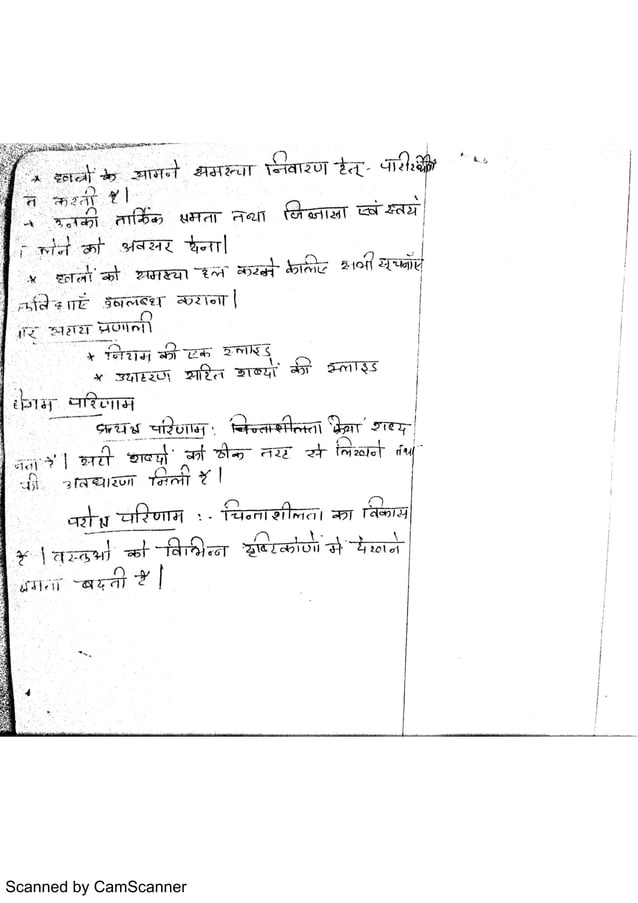 * छात्रों के सामने समस्या निवारण हेतु -
त करती है।
→ उनकी तार्किक क्षमता तथा जिज्ञासा एवं स्वयं
को अवसर देना।
* छात्रों को समस्या हल करने के लिए सभी सूचनाएँ
उपलब्ध कराना।
प्रणाली
* नियम की एक स्लाइड
* उदाहरण सहित शब्दों की स्लाइड
परिणाम
प्रत्यक्ष परिणाम : चिन्ताशीलता शब्द
है। सही शब्दों को ठीक तरह से लिखने तथा
की अवधारणा मिली है।
परोक्ष परिणाम :- चिन्ताशीलता का विकास
है। वस्तुओं को विभिन्न दृष्टिकोणों में देखने
क्षमता बढ़ती है।
Scanned by CamScanner